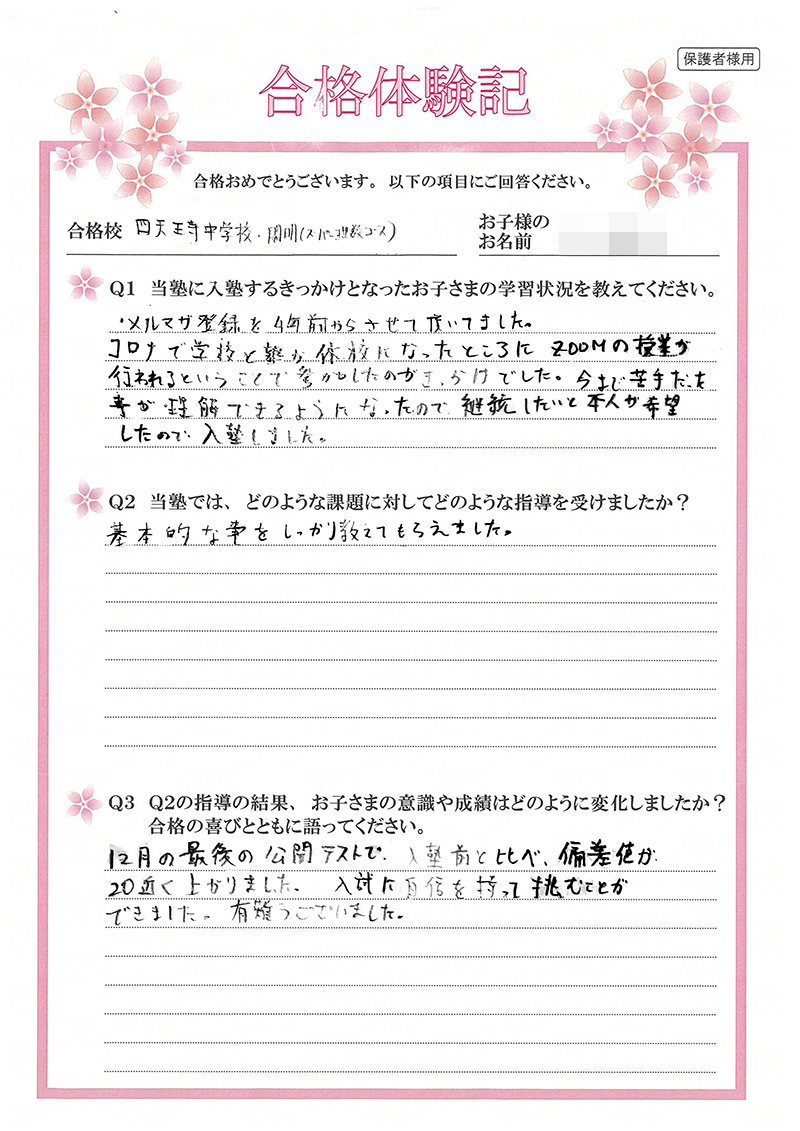 保護者様用
合格体験記
合格おめでとうございます。以下の項目にご回答ください。
合格校 四天王寺中学校・開明(スーパー理数コース)
お子様の
お名前
Q1 当塾に入塾するきっかけとなったお子さまの学習状況を教えてください。
メルマガ登録を4年前からさせて頂いてました。
コロナで学校と塾が休校になったところにZOOMの授業が
行われるということで参加したのがきっかけでした。今まで苦手だった
事が理解できるようになったので、継続したいと本人が希望
したので入塾しました。
Q2 当塾では、どのような課題に対してどのような指導を受けましたか?
基本的な事をしっかり教えてもらえました。
Q3 Q2の指導の結果、お子さまの意識や成績はどのように変化しましたか?
合格の喜びとともに語ってください。
12月の最後の公開テストで、入塾前と比べ、偏差値が
20近く上がりました。入試に自信を持って挑むことが
できました。有難うございました。